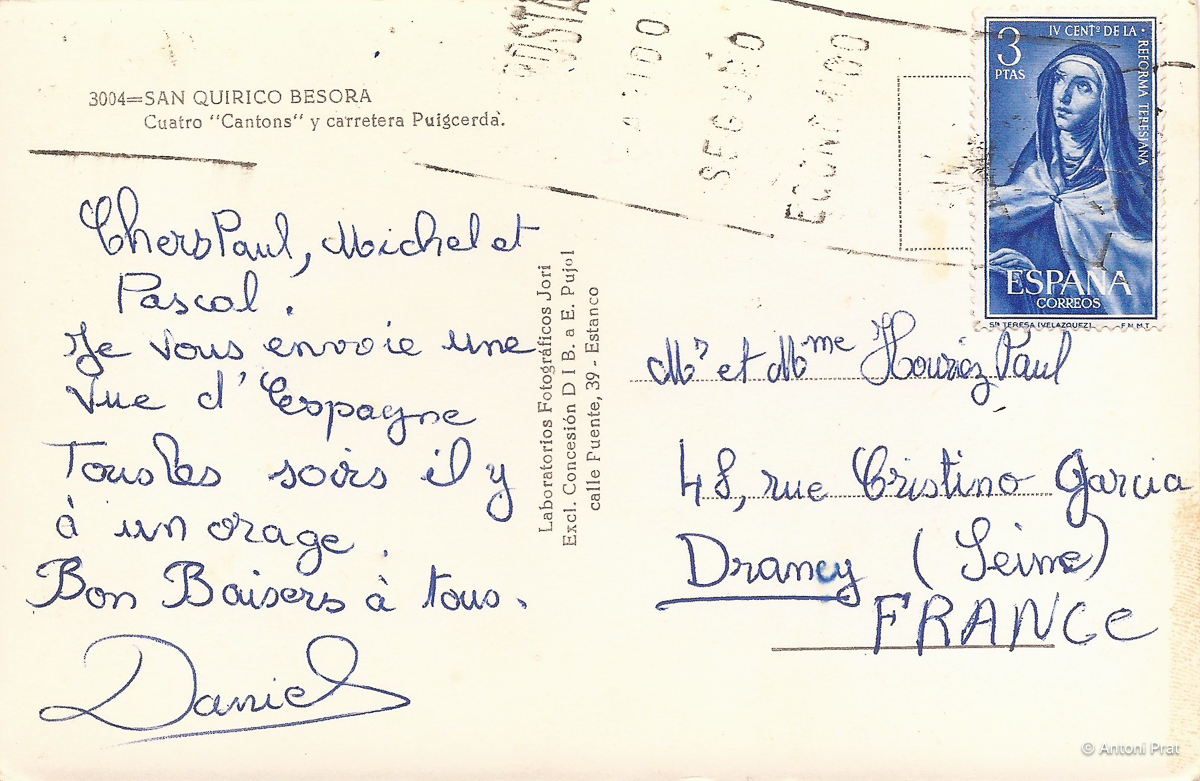 3004=SAN QUIRICO BESORA
Cuatro "Cantons" y carretera Puigcerdá.
Chers Paul, Michel et
Pascal.
Je vous envoie une
vue d'Espagne
Tous les soirs il y
à un orage.
Bon Baisers à tous.
Daniel
Laboratorios Fotográficos Jori
Excl. Concesión D I B. a E. Pujol
calle Puente, 39 - Estanco
3
PTAS
IV CENTº DE LA
REFORMA TERESIANA
ESPAÑA
CORREOS
STA TERESA (VELAZQUEZ) F.N.M.T.
Mr et Mme Houriez Paul
48, rue Cristino Garcia
Drancy (Seine)
FRANCE
© Antoni Prat